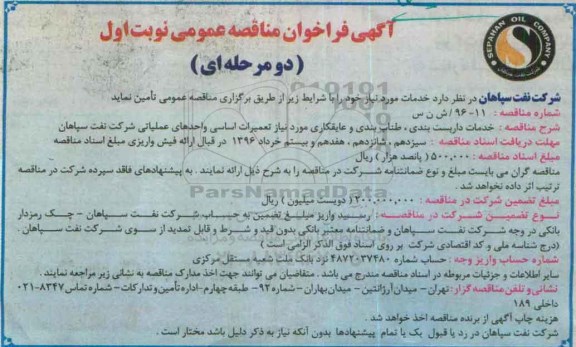 SEPAHAN OIL COMPANY
شرکت نفت سپاهان
آگهی فراخوان مناقصه عمومی نوبت اول
(دو مرحله ای)
شرکت نفت سپاهان در نظر دارد خدمات مورد نیاز خود را با شرایط زیر از طریق برگزاری مناقصه عمومی تأمین نماید
شماره مناقصه : ۱۱-۹۶ / ش ن س
شرح مناقصه : خدمات داربست بندی ، طناب بندی و عایقکاری مورد نیاز تعمیرات اساسی واحدهای عملیاتی شرکت نفت سپاهان
مهلت دریافت اسناد مناقصه : سیزدهم ، شانزدهم ، هفدهم و بیستم خرداد ۱۳۹۶ در قبال ارائه فیش واریزی مبلغ اسناد مناقصه
مبلغ اسناد مناقصه : ۵۰۰,۰۰۰ ( پانصد هزار ) ریال
مناقصه گران می بایست مبلغ و نوع ضمانتنامه شرکت در مناقصه را به شرح ذیل ارائه نمایند . به پیشنهادهای فاقد سپرده شرکت در مناقصه
ترتیب اثر داده نخواهد شد .
مبلغ تضمین شرکت در مناقصه : ۲۰۰,۰۰۰,۰۰۰ ( دویست میلیون ) ریال
نوع تضمین شرکت در مناقصه : رسید واریز مبلغ تضمین به حساب شرکت نفت سپاهان - چک رمزدار
بانکی در وجه شرکت نفت سپاهان و ضمانتنامه معتبر بانکی بدون قید و شرط و قابل تمدید از سوی شرکت نفت سپاهان .
(درج شناسه ملی و کد اقتصادی شرکت بر روی اسناد فوق الذکر الزامی است )
شماره حساب واریز وجه : حساب شماره ۴۸۷۲۰۳۷۴۸۰ نزد بانک ملت شعبه مستقل مرکزی
سایر اطلاعات و جزئیات مربوطه در اسناد مناقصه مندرج می باشد . متقاضیان می توانند جهت اخذ مدارک مناقصه به نشانی زیر مراجعه نمایند .
نشانی و تلفن مناقصه گزار : تهران - میدان آرژانتین - میدان بهاران - شماره ۹۲ - طبقه چهارم - اداره تأمین و تدارکات - شماره تماس ۸۳۴۷-۰۲۱
داخلی ۱۸۹
هزینه چاپ آگهی از برنده مناقصه اخذ خواهد شد .
شرکت نفت سپاهان در رد یا قبول یک یا تمام پیشنهادها بدون آنکه نیاز به ذکر دلیل باشد مختار است .
ParsNamadData